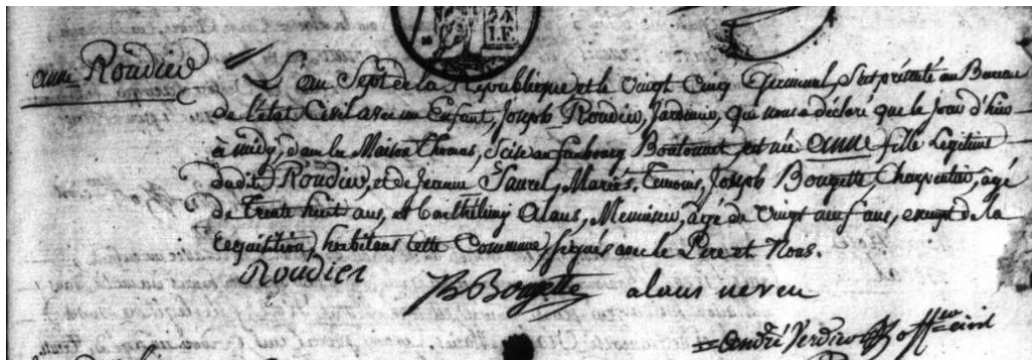 anne Roudier
L'an Sept de la République et le vingt Cinq Germinal, S'est présenté au Bureau
de l'état Civil avec un Enfant, Joseph Roudier, Jardinier, qui nous a déclaré que le jour d'hier
à midy, dans la Maison Thomas, Scise au fauxbourg Boutonnet est née anne fille Légitime
dudit Roudier, et de Jeanne Saurel, Mariés. Temoins, Joseph Bougette, Charpentier, âgé
de Trente huit ans, et barthélemy alaus, Menuisier, âgé de vingt neuf ans, exempt de la
requisition, habitans cette Commune, signés avec le Pere et Nous.
Roudier
Bougette alaus neveu
andré Verdier off.er civil